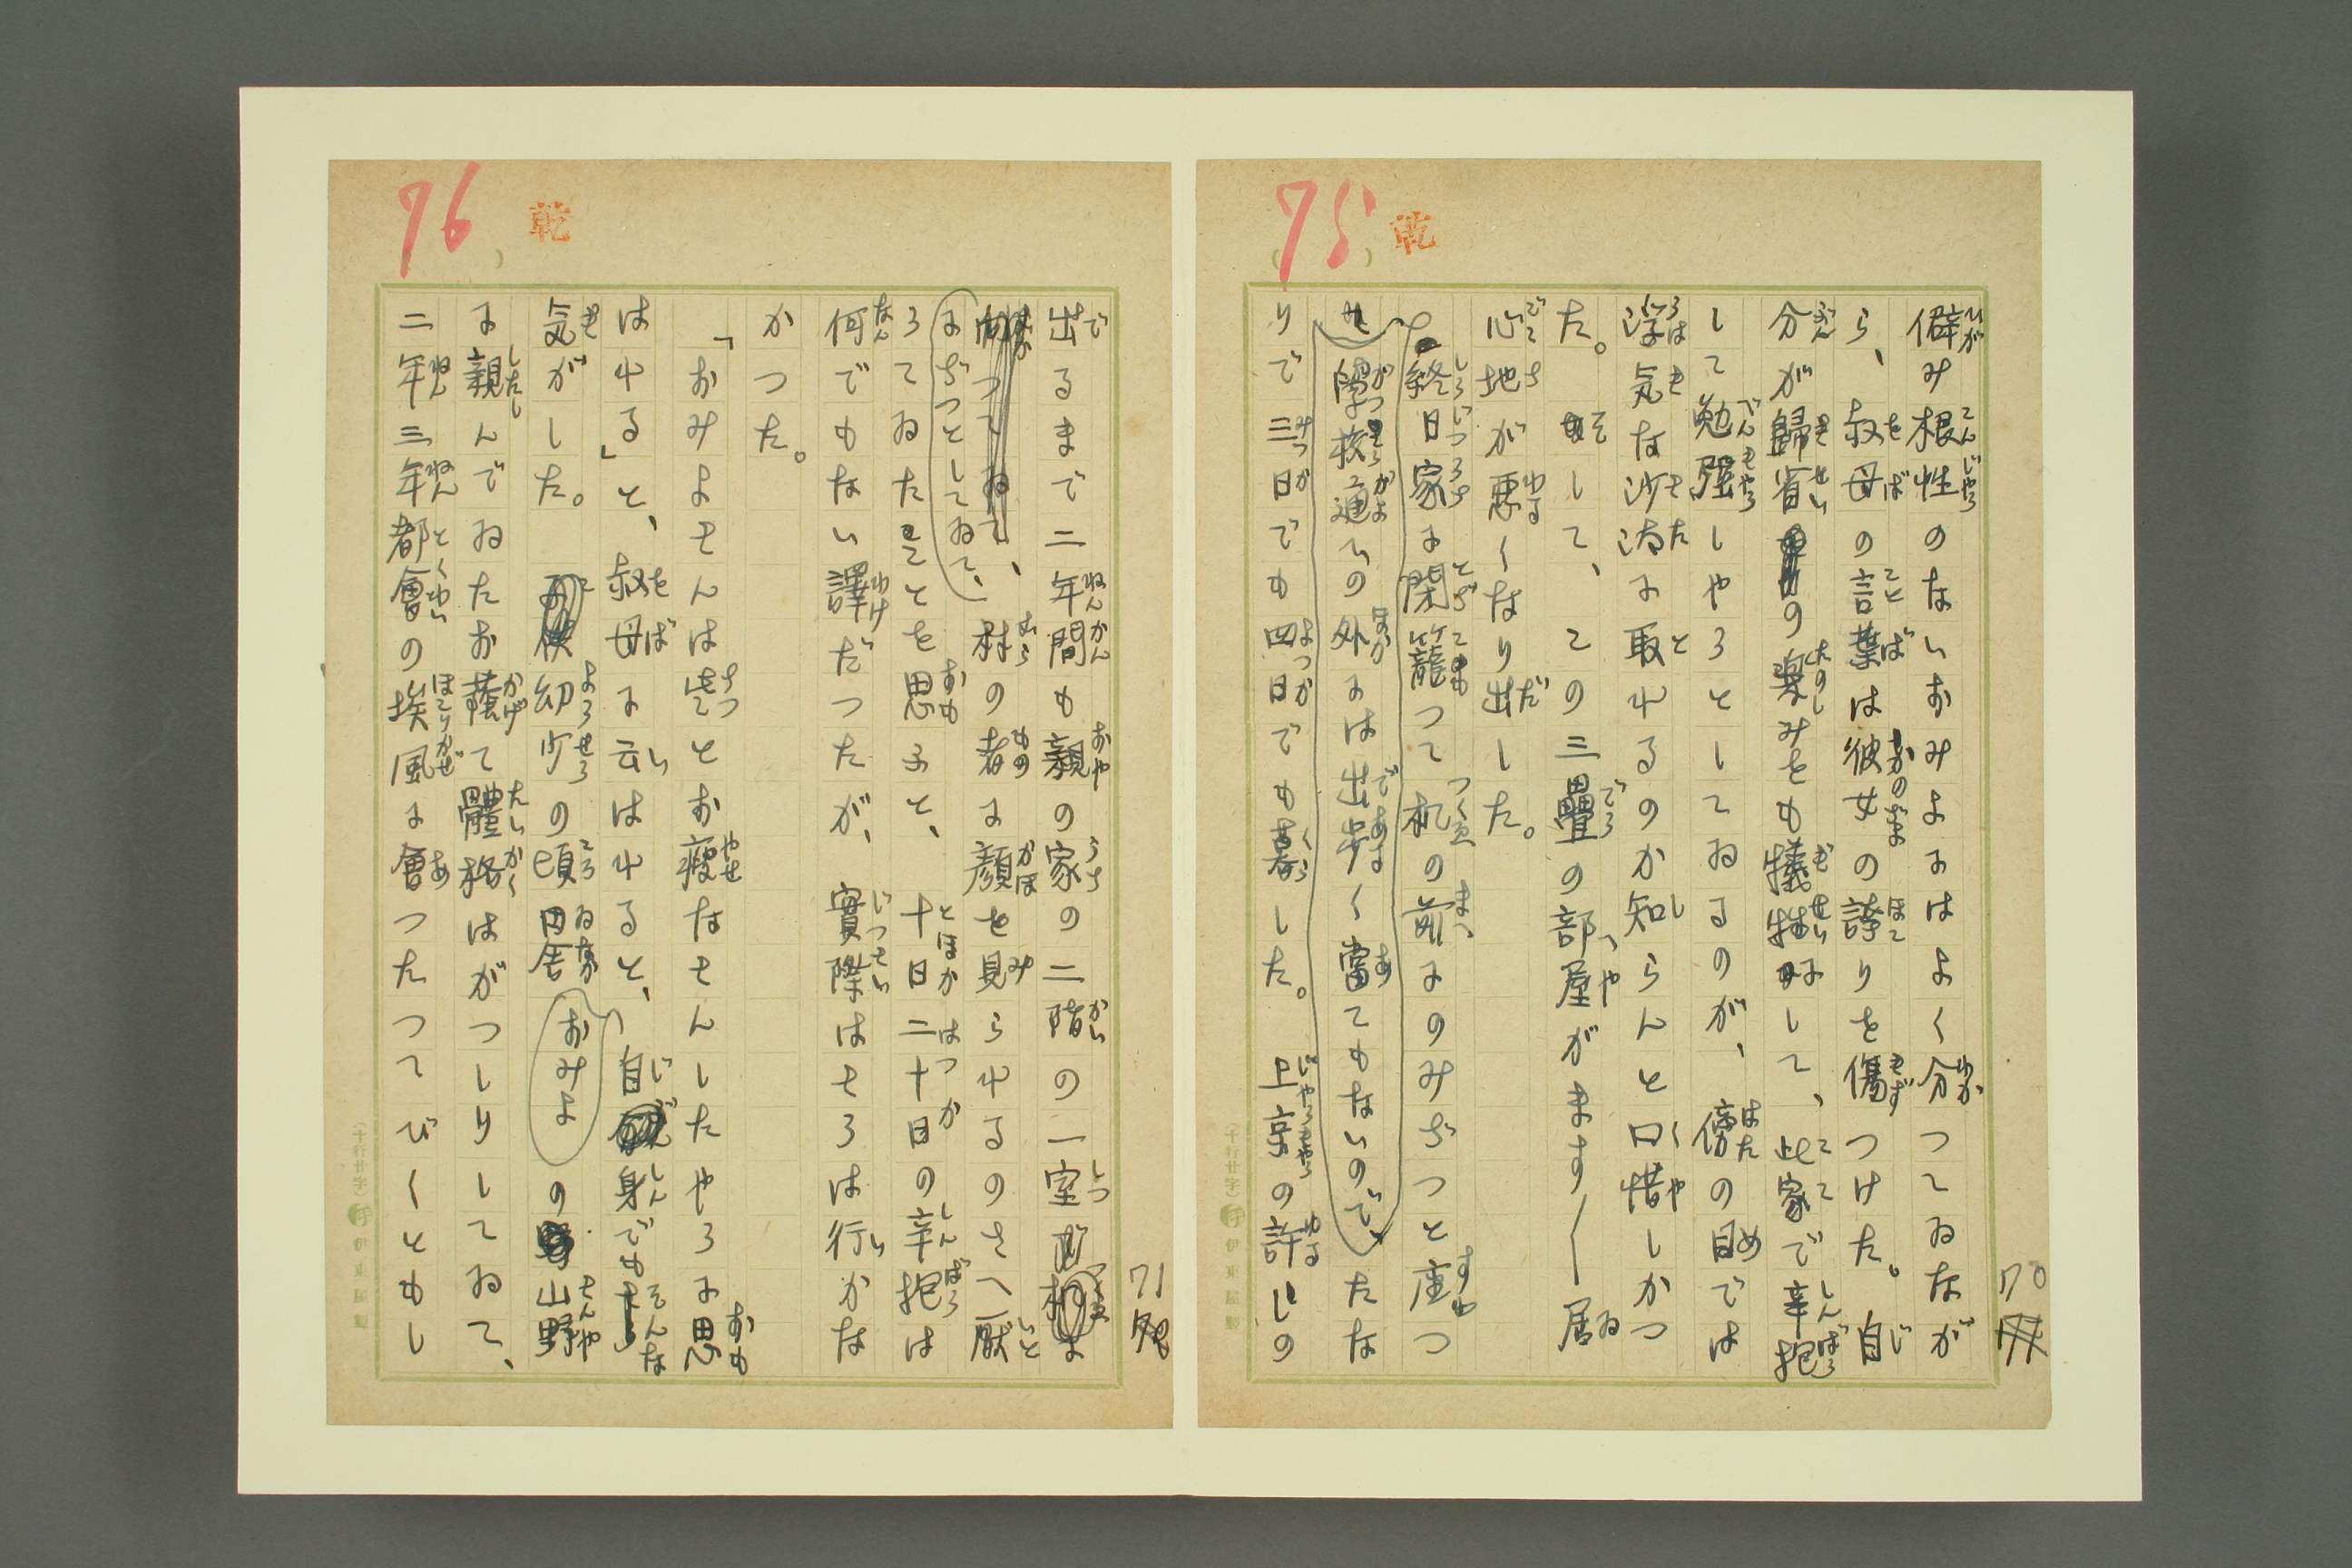 75
乾
70
僻み根性のないおみよにはよく分つてゐなが
ら、叔母の言葉は彼女の誇りを傷つけた。自
分が歸省の楽みをも犠牲にして、此家で辛抱
して勉强しやうとしてゐるのが、傍の目では
浮気な沙汰に取れるのか知らんと口惜しかつ
た。そして、この三疊の部屋がます〱居
心地が悪くなり出した。
終日家に閉籠つて机の前にのみぢつと座つ
學校通ひの外には出歩く當てもないので、たな
りで三日でも四日でも暮した。上京の許しの
76
乾
71
出るまで二年間も親の家の二階の一室
にぢつとしてゐて、村の者に顔を見られるのさへ厭
うてゐたことを思ふと、十日二十日の辛抱は
何でもない譯だつたが、實際はさうは行かな
かつた。
「おみよさんは些とお痩なさんしたやうに思
はれる」と、叔母に云はれると、自身でもそんな
気がした。幼少の頃田舎おみよの山野
に親んでゐたお蔭で體格はがつしりしてゐて、
二年三年都會の埃風に會つたつてびくともし